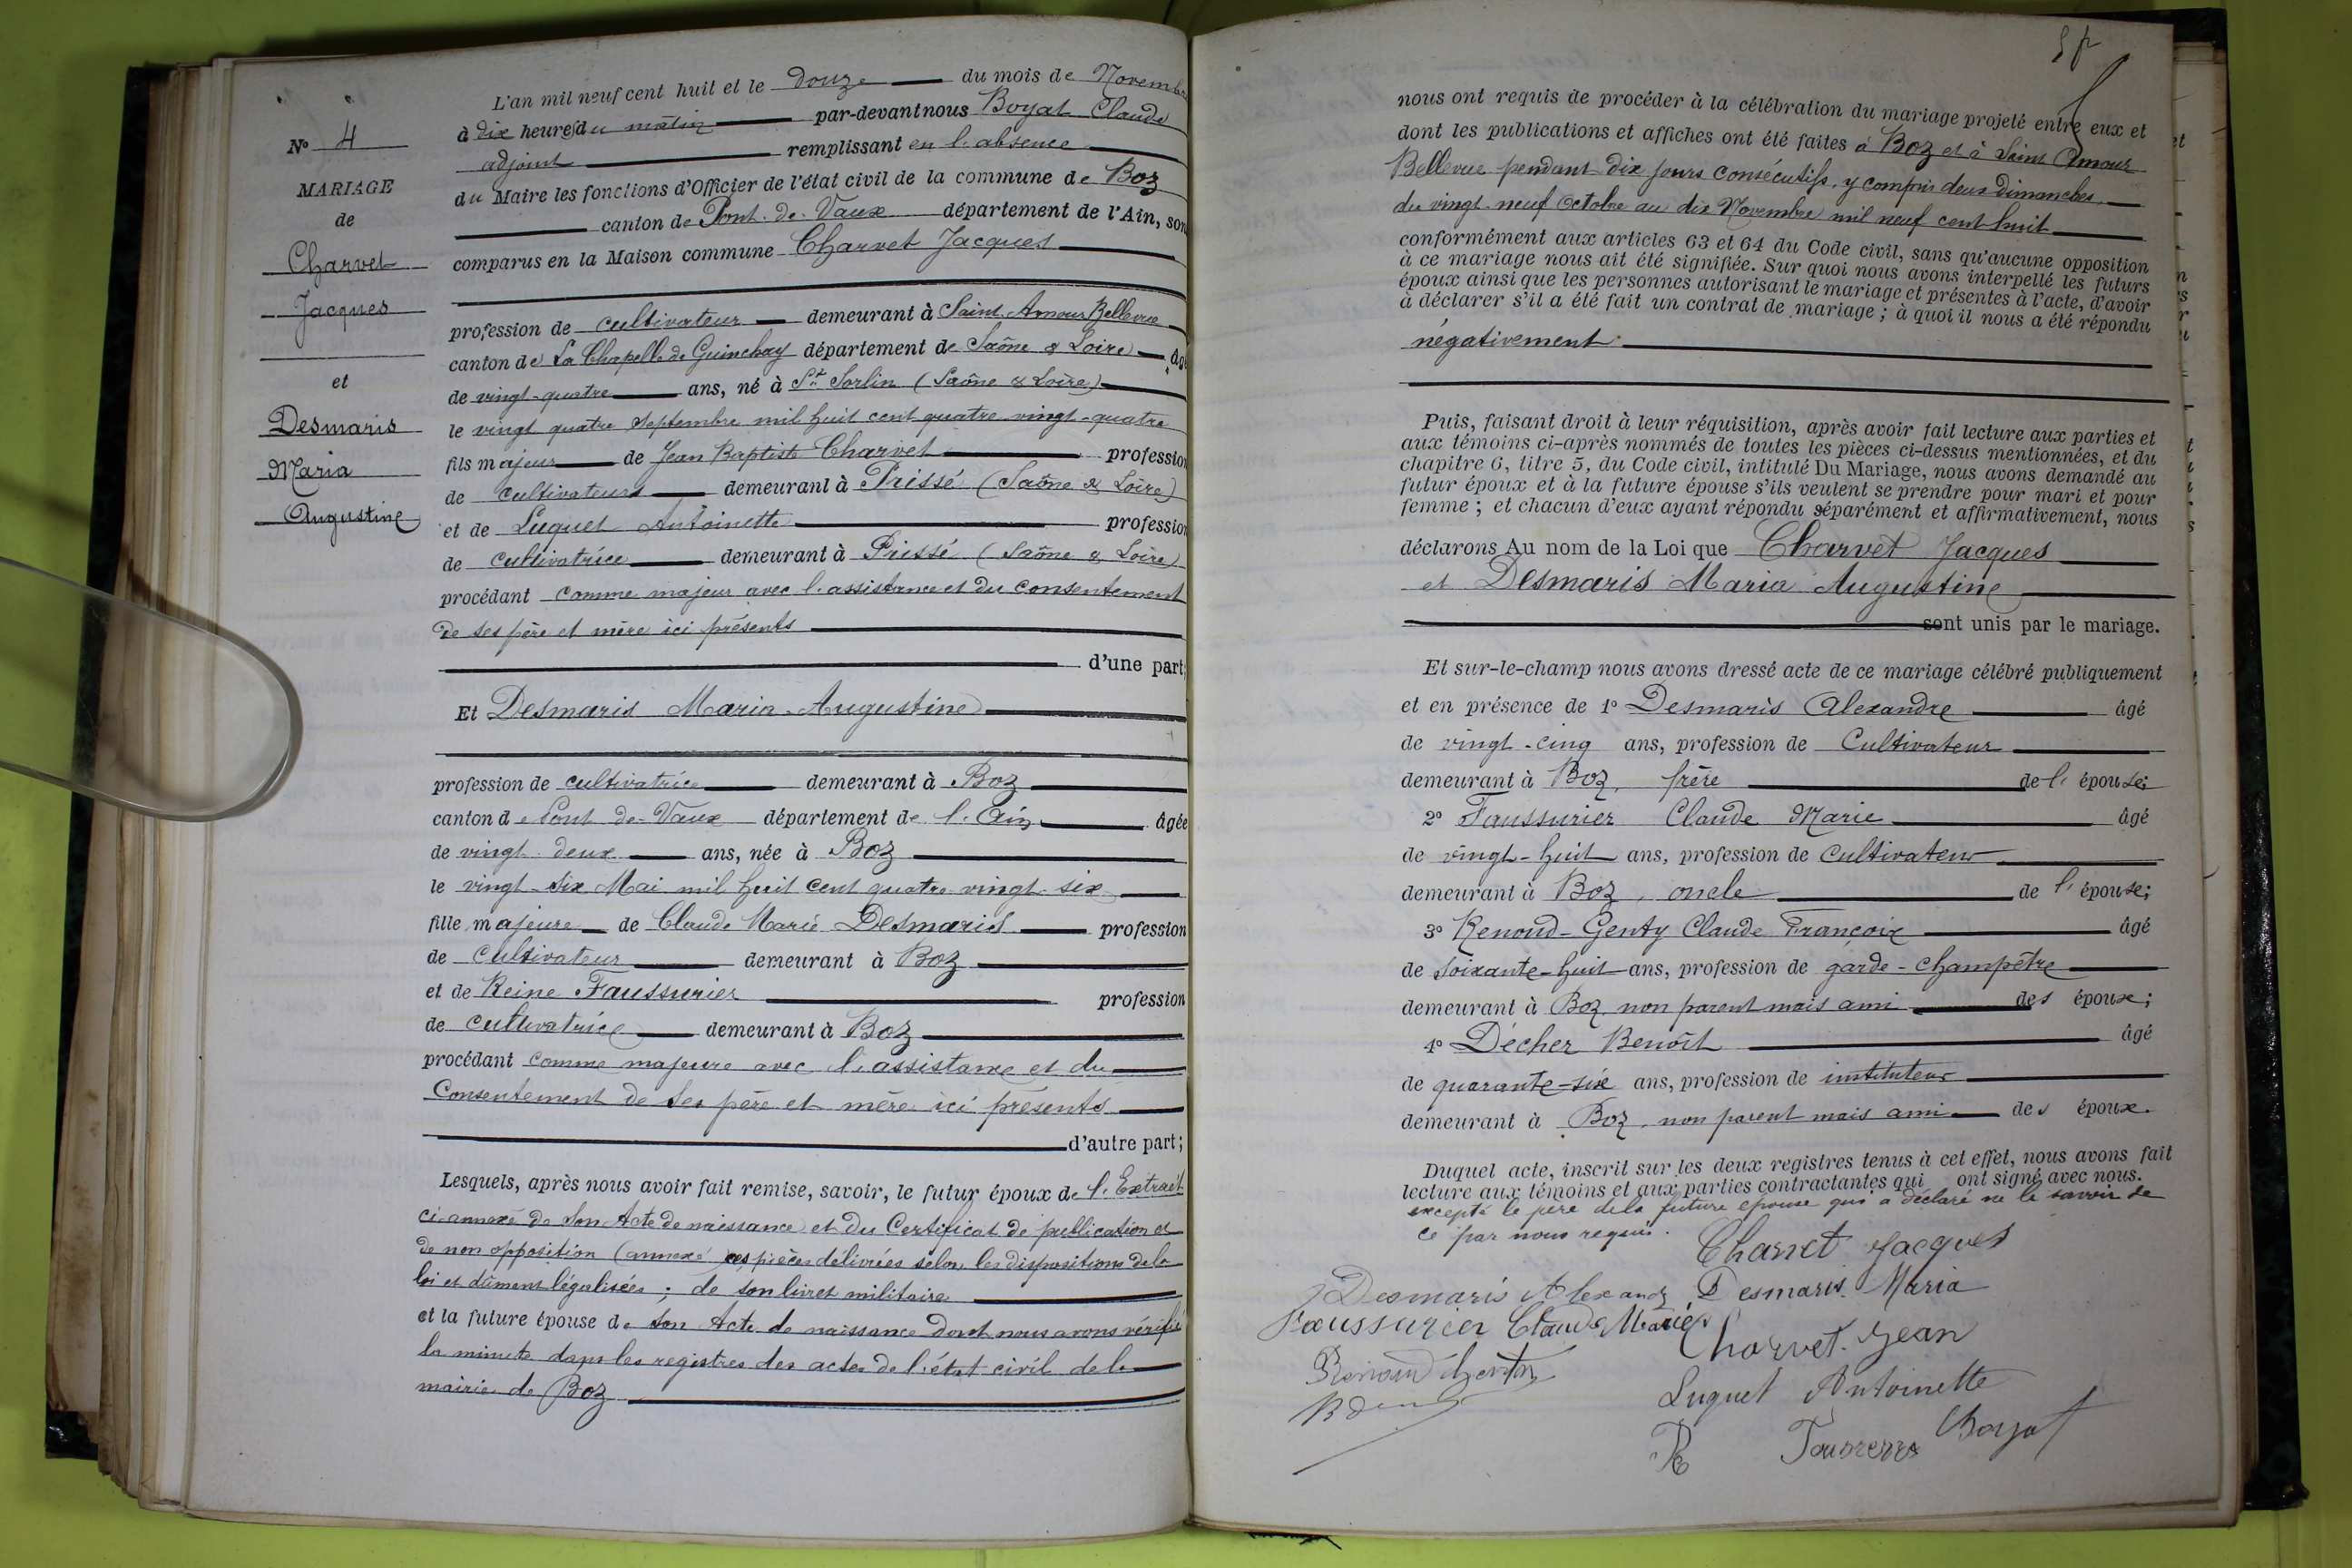 N° 4
MARIAGE
de
Charvet
Jacques
et
Desmaris
Maria
Augustine
L'an mil neuf cent huit et le douze du mois de Novembre
à dix heures du matin par-devant nous Boyat Claude
adjoint remplissant en l'absence
du Maire les fonctions d'Officier de l'état civil de la commune de Boz
canton de Pont-de-Vaux département de l'Ain, sont
comparus en la Maison commune Charvet Jacques
profession de cultivateur demeurant à Saint-Amour Bellevue
canton de La Chapelle de Guinchay département de Saône & Loire âgé
de vingt-quatre ans, né à St Sorlin (Saône & Loire)
le vingt quatre Septembre mil huit cent quatre vingt-quatre
fils majeur de Jean Baptiste Charvet profession
de cultivateurs demeurant à Prissé (Saône & Loire)
et de Luquet Antoinette profession
de cultivatrice demeurant à Prissé (Saône & Loire)
procédant comme majeur avec l'assistance et du consentement
de ses père et mère ici présents
d'une part;
Et Desmaris Maria-Augustine
profession de cultivatrice demeurant à Boz
canton de Pont-de-Vaux département de l'Ain âgée
de vingt-deux ans, née à Boz
le vingt-six Mai mil huit cent quatre-vingt-six
fille majeure de Claude Marie Desmaris profession
de cultivateur demeurant à Boz
et de Reine Faussurier profession
de cultivatrice demeurant à Boz
procédant comme majeure avec l'assistance et du
consentement de ses père et mère ici présents
d'autre part;
Lesquels, après nous avoir fait remise, savoir, le futur époux de l'Extrait
ci-annexé de son Acte de naissance et du Certificat de publication et
de non opposition (annexé) ces pièces délivrées selon les dispositions de la
loi et dûment légalisées; de son livret militaire
et la future épouse de son Acte de naissance dont nous avons vérifié
la minute dans les registres des actes de l'état civil de la
mairie de Boz
nous ont requis de procéder à la célébration du mariage projeté entre eux et
dont les publications et affiches ont été faites à Boz et à Saint Amour
Bellevue pendant dix jours consécutifs, y compris deux Dimanches,
du vingt-neuf Octobre au dix Novembre mil neuf cent huit
conformément aux articles 63 et 64 du Code civil, sans qu'aucune opposition
à ce mariage nous ait été signifiée. Sur quoi nous avons interpellé les futurs
époux ainsi que les personnes autorisant le mariage et présentes à l'acte, d'avoir
à déclarer s'il a été fait un contrat de mariage; à quoi il nous a été répondu
négativement.
Puis, faisant droit à leur réquisition, après avoir fait lecture aux parties et
aux témoins ci-après nommés de toutes les pièces ci-dessus mentionnées, et du
chapitre 6, titre 5, du Code civil, intitulé Du Mariage, nous avons demandé au
futur époux et à la future épouse s'ils veulent se prendre pour mari et pour
femme; et chacun d'eux ayant répondu séparément et affirmativement, nous
déclarons Au nom de la Loi que Charvet Jacques
et Desmaris Maria Augustine
sont unis par le mariage.
Et sur-le-champ nous avons dressé acte de ce mariage célébré publiquement
et en présence de 1° Desmaris Alexandre âgé
de vingt-cinq ans, profession de Cultivateur
demeurant à Boz, frère de l'épouse;
2° Faussurier Claude Marie âgé
de vingt-huit ans, profession de cultivateur
demeurant à Boz, oncle de l'épouse;
3° Renoud-Genty Claude François âgé
de soixante-huit ans, profession de garde-champêtre
demeurant à Boz, non parent mais ami des époux;
4° Décher Benoît âgé
de quarante-six ans, profession de instituteur
demeurant à Boz, non parent mais ami des époux.
Duquel acte, inscrit sur les deux registres tenus à cet effet, nous avons fait
lecture aux témoins et aux parties contractantes qui ont signé avec nous.
excepté le père de la future épouse qui a déclaré ne le savoir de
ce par nous requis.
Charvet Jacques
Desmaris Alexand Desmaris Maria
Faussurier Claude Marie
Charvet Jean
Renoud Genty
Luquet Antoinette
R Boyat